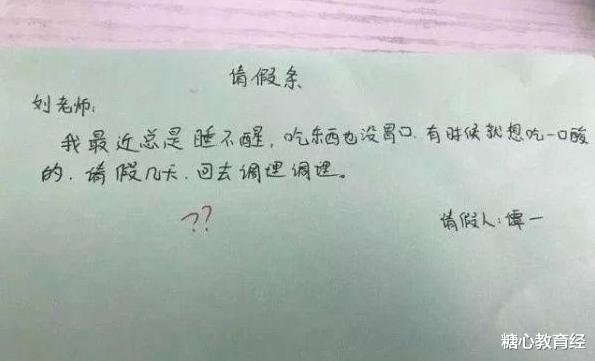 请假条
刘老师:
我最近总是睡不醒,吃东西也没胃口.有时候就想吃一口酸
的.请假几天.回去调理调理。
??
请假人:谭一
糖心教育经